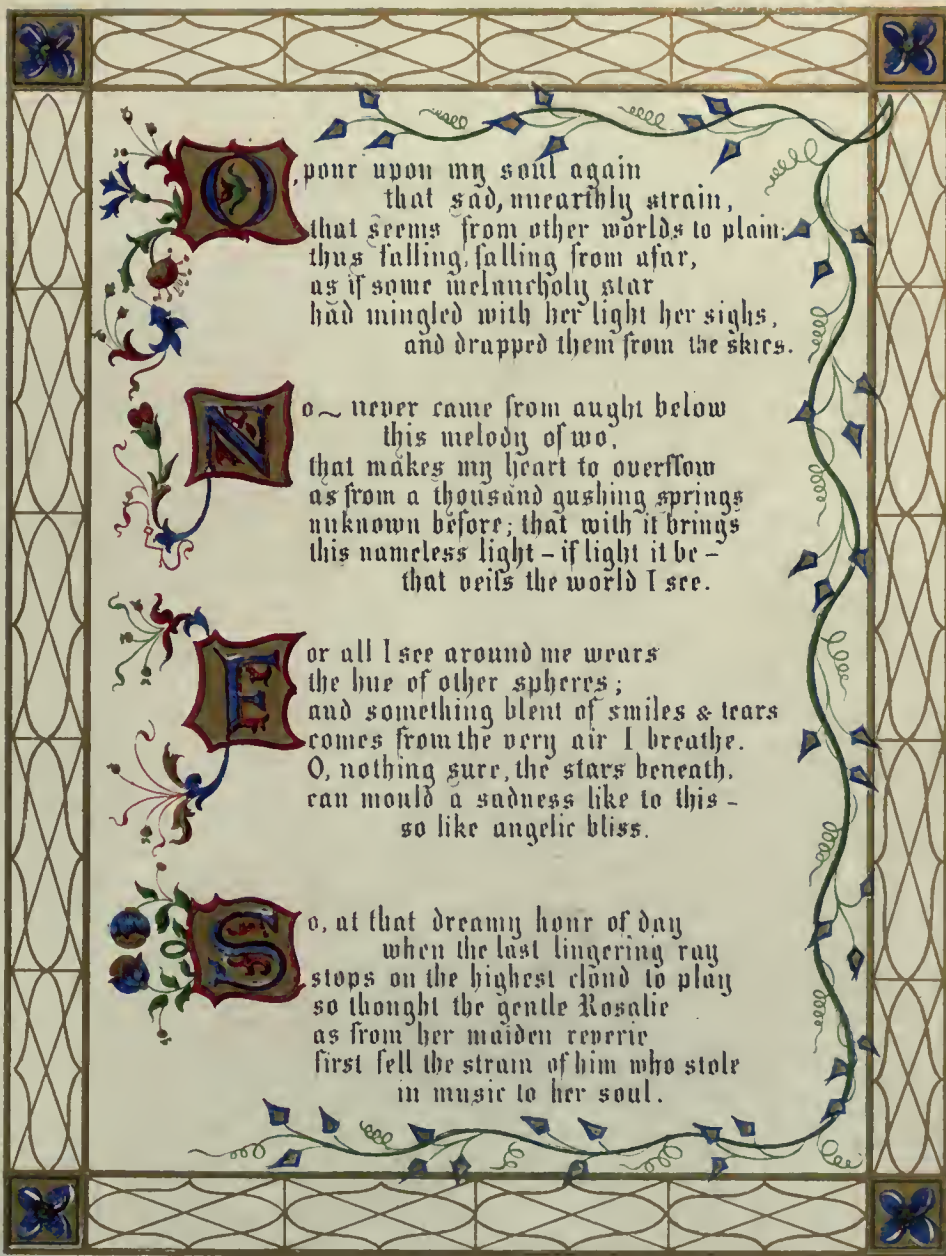 O, pour upon my soul again
that sad, unearthly strain,
that seems from other worlds to plain;
thus falling, falling from afar,
as if some melancholy star
had mingled with her light her sighs,
and drapped them from the skies.
No~ never came from aught below
this melody of wo,
that makes my heart to overflow
as from a thousand gushing springs
unknown before; that with it brings
this nameless light – if light it be –
that veils the world I see.
For all I see around me wears
the hue of other spheres;
and something blent of smiles & tears
comes from the very air I breathe.
O, nothing sure, the stars beneath,
can mould a sadness like to this –
so like angelic bliss.
So, at that dreamy hour of day
when the last lingering ray
stops on the highest cloud to play
so thought the gentle Rosalie
as from her maiden reverie
first fell the strain of him who stole
in music to her soul.